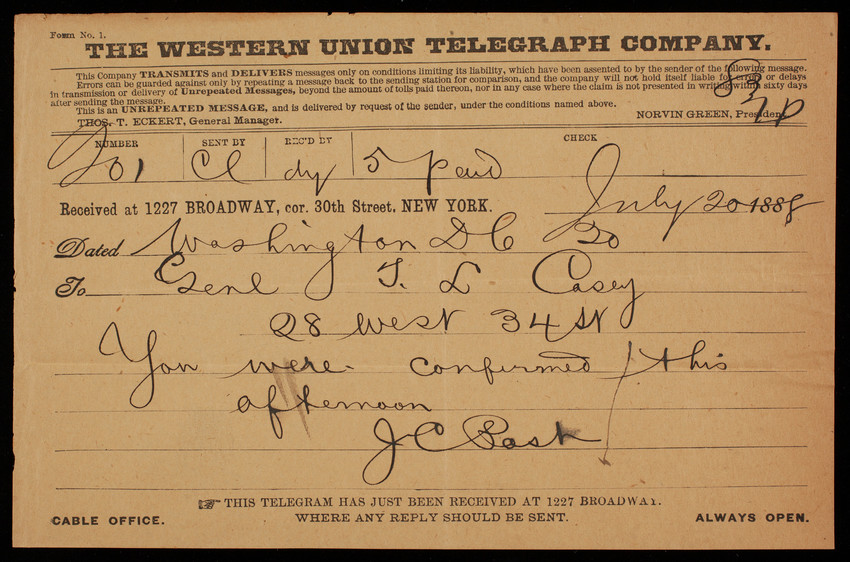 Form No. 1.
THE WESTERN UNION TELEGRAPH COMPANY.
This Company TRANSMITS and DELIVERS messages only on conditions limiting its liability, which have been assented to by the sender of the following message.
Errors can be guarded against only by repeating a message back to the sending station for comparison, and the company will not hold itself liable for errors or delays
in transmission or delivery of Unrepeated Messages, beyond the amount of tolls paid thereon, nor in any case where the claim is not presented in writing within sixty days
after sending the message.
This is an UNREPEATED MESSAGE, and is delivered by request of the sender, under the conditions named above.
THOS. T. ECKERT, General Manager.
NORVIN GREEN, President.
NUMBER SENT BY REC'D BY CHECK
201 Cl dy 5 Paid
Received at 1227 BROADWAY, cor. 30th Street, NEW YORK.
July 20 1888
Dated Washington DC 20
To Genl T. L Casey
28 West 34 St
You were confirmed this
afternoon
J C Post
THIS TELEGRAM HAS JUST BEEN RECEIVED AT 1227 BROADWAY.
CABLE OFFICE. WHERE ANY REPLY SHOULD BE SENT. ALWAYS OPEN.